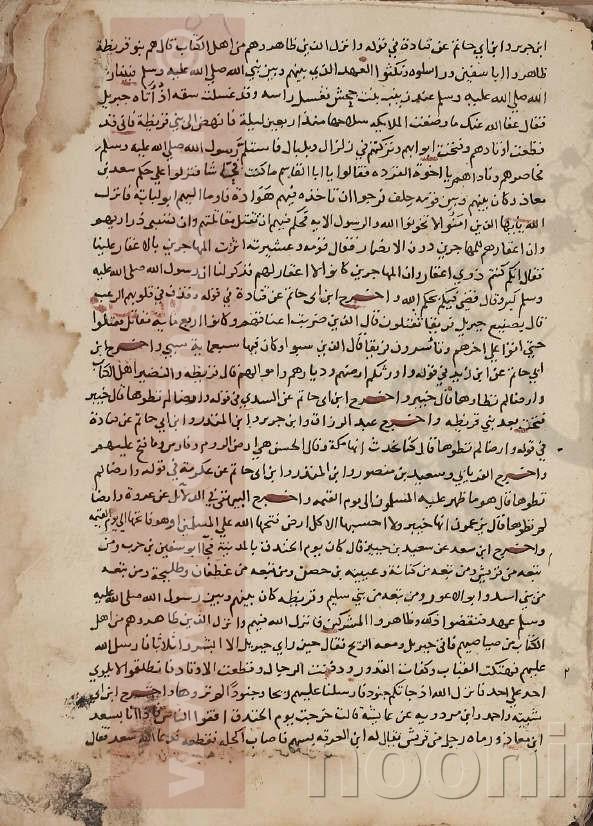 ابن جرير وابن ابي حاتم عن قتادة في قوله وانزل الذين ظاهروهم من اهل الكتاب قال هم بنو قريظة
ظاهروا ابا سفين وراسلوه ونكثوا العهد الذي بينهم وبين نبي الله صلى الله عليه وسلم فبينا
الله صلي الله عليه وسلم عند زينب بنت جحش يغسل راسه وقد غسلت شقه اذ اتاه جبريل
فقال عفا الله عنك ما وضعت الملايكه سلاحها منذ اربعين ليلة فانهض الى بني قريظة فاني قد
قطعت اوتادهم وفتحت ابوابهم وتركتهم في زلزال وبلبال فاستلم رسول الله صلى الله عليه وسلم
فحاصرهم وناداهم يا اخوة القردة فقالوا يا ابا القاسم ما كنت فحاشا فنزلوا على حكم سعد بن
معاذ وكان بينهم وبين قومه حلف فرجوا ان تاخذه فيهم هوادة فاوما اليهم ابو لبابة فانزل
الله يايها الذين امنوا لا تخونوا الله والرسول الاية فحكم فيهم ان تقتل مقاتلتهم وان تسبى ذراريهم
وان اعقارهم للمهاجرين دون الانصار فقال قومه وعشيرته اثرت المهاجرين بالاعقار علينا
فقال انكم كنتم ذوي اعقار وان المهاجرين كانوا لا اعقار لهم فذكر لنا ان رسول الله صلى الله عليه
وسلم كبر وقال قضى فيكم بحكم الله واخرج ابن ابي حاتم عن قتادة في قوله وقذف في قلوبهم الرعب
قال بصنيع جبريل فريقا تقتلون قال الذين ضربت اعناقهم وكانوا اربع ماية مقاتل فقتلوا
حتى اتوا على اخرهم وتاسرون فريقا قال الذين سبوا وكان فيها سبعماية سبي واخرج ابن
ابي حاتم عن ابن زيد في قوله واورثكم ارضهم وديارهم واموالهم قال قريظة والنضير اهل الكتاب
وارضا لم تطاوها قال خيبر واخرج ابن ابي حاتم عن السدي في قوله وارضا لم تطوها قال خيبر
فتحت بعد بني قريظه واخرج عبد الرزاق وابن جرير وابن المنذر وابن ابي حاتم عن قتادة
في قوله وارضا لم تطوها قال كنا نحدث انها مكة وقال الحسن هي ارض الروم وفارس وما فتح عليهم
واخرج الفريابي وسعيد بن منصور وابن المنذر وابن ابي حاتم عن عكرمة في قوله وارضا لم
تطوها قال هو ما ظهر عليه المسلمون الى يوم القيمه واخرج البيهقي في الدلائل عن عروة وارضا
لم تطوها قال يزعمون انها خيبر ولا احسبها الا كل ارض فتحها الله على المسلمين او هو فاتحها الى يوم القيمه
واخرج ابن سعد عن سعيد بن جبير قال كان يوم الخندق بالمدينة فجا ابو سفين بن حرب ومن
تبعه من قريش ومن تبعه من كنانة وعيينه بن حصن ومن تبعه من غطفان وطليحة ومن تبعه
من بني اسد وابو الاعور ومن تبعه من بني سليم وقريظه كان بينهم وبين رسول الله صلى الله عليه
وسلم عهد فنقضوا ذلك وظاهروا المشركين فانزل الله فيهم وانزل الذين ظاهروهم من اهل
الكتاب من صياصيهم فاتى جبريل ومعه الريح فقال حين راى جبريل الا ابشروا ثلاثا فارسل الله
عليهم فهتكت القباب وكفات القدور ودفنت الرحال وقطعت الاوتاد فانطلقوا لا يلوي
احد على احد فانزل الله اذ جاتكم جنود فارسلنا عليهم ريحا وجنودا لم تروها واخرج ابن ابي
شيبة واحمد وابن مردويه عن عائشة قالت خرجت يوم الخندق اقفوا الناس فاذا انا بسعد
ابن معاذ ورماه رجل من قريش يقال له ابن العرقه بسهم فاصاب اكحله فقطعه فدعا الله سعد فقال